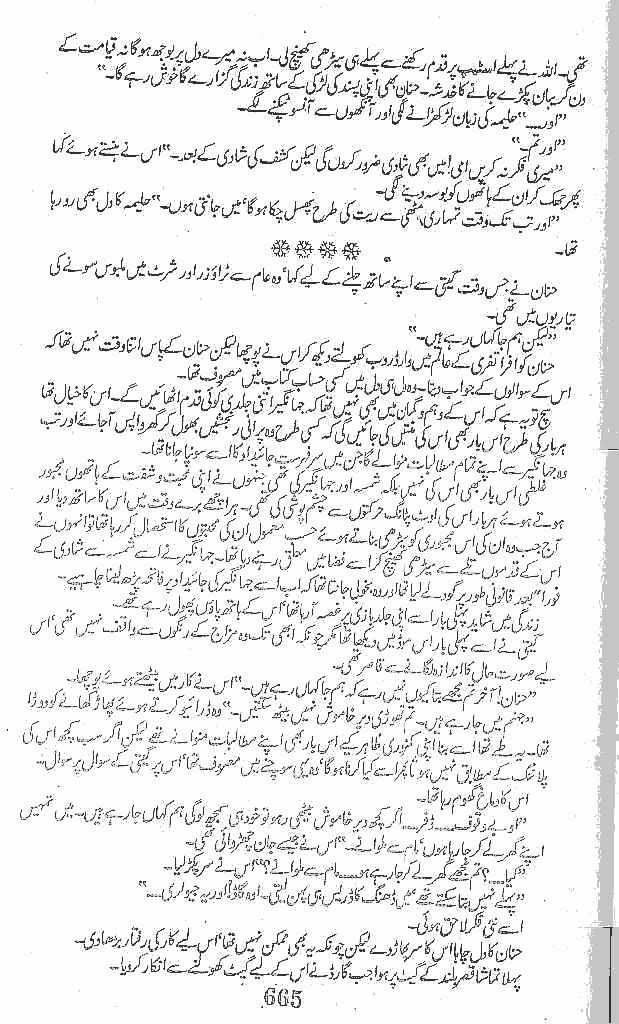 تھی۔ اللہ نے پہلے اسٹیپ پر قدم رکھنے سے پہلے ہی سیڑھی کھینچ لی۔ اب نہ میرے دل پر بوجھ ہوگا نہ قیامت کے
دن گریبان پکڑے جانے کا خدشہ۔ حنان بھی اپنی پسند کی لڑکی کے ساتھ زندگی گزارے گا خوش رہے گا۔"
"اور....." حلیمہ کی زبان لڑکھڑانے لگی اور آنکھوں سے آنسو ٹپکنے لگے۔
"اور تم۔"
"میری فکر نہ کریں امی! میں بھی شادی ضرور کروں گی لیکن کشف کی شادی کے بعد۔" اس نے ہنستے ہوئے کہا
پھر جھک کر ان کے ہاتھوں کو بوسہ دینے لگی۔
"اور تب تک وقت تمہاری مٹھی سے ریت کی طرح پھسل چکا ہوگا' میں جانتی ہوں۔" حلیمہ کا دل بھی رو رہا
تھا۔
حنان نے جس وقت گیتی سے اپنے ساتھ چلنے کے لیے کہا' وہ عام سے ٹراؤزر اور شرٹ میں ملبوس سونے کی
تیاریوں میں تھی۔
"لیکن ہم جا کہاں رہے ہیں۔"
حنان کو افراتفری کے عالم میں وارڈروب کھولتے دیکھ کر اس نے پوچھا لیکن حنان کے پاس اتنا وقت نہیں تھا کہ
اس کے سوالوں کے جواب دیتا۔ وہ دل ہی دل میں کسی حساب کتاب میں مصروف تھا۔
سچ تو یہ ہے کہ اس کے وہم و گمان میں بھی نہیں تھا کہ جہانگیر اتنی جلدی کوئی قدم اٹھائیں گے۔ اس کا خیال تھا
ہر بار کی طرح اس بار بھی اس کی منتیں کی جائیں گی کہ کسی طرح وہ پرانی رنجشیں بھول کر گھر واپس آجائے اور تب
وہ جہانگیر سے اپنے تمام مطالبات منوالے گا جن میں سرفہرست جائیداد کا اسے سونپا جانا تھا۔
غلطی اس بار بھی اس کی نہیں بلکہ شمسہ اور جہانگیر کی تھی جنہوں نے اپنی محبت و شفقت کے ہاتھوں مجبور
ہوتے ہوئے ہر بار اس کی اوٹ پٹانگ حرکتوں سے چشم پوشی کی تھی۔ ہر اچھے برے وقت میں اس کا ساتھ دیا اور
آج جب وہ ان کی اس مجبوری کو سیڑھی بناتے ہوئے حسب معمول ان کی محبتوں کا استحصال کر رہا تھا تو انہوں نے
اس کے قدموں تلے سے سیڑھی کھینچ کر اسے فضا میں معلق رہنے دیا تھا۔ جہانگیر نے اسے شمسہ سے شادی کے
فورا" بعد قانونی طور پر گود لے لیا تھا اور وہ بخوبی جانتا تھا کہ اب اسے جہانگیر کی جائیداد پر فاتحہ پڑھ لینا چاہیے۔
زندگی میں شاید پہلی بار اسے اپنی جلد بازی پر غصہ آ رہا تھا' اس کے ہاتھ پاؤں پھول رہے تھے۔
گیتی نے اسے پہلی بار اس موڈ میں دیکھا تھا مگر چونکہ ابھی تک وہ مزاج کے رنگوں سے واقف نہیں تھی' اس
لیے صورت حال کا اندازہ لگانے سے قاصر تھی۔
"حنان! آخر تم مجھے بتا کیوں نہیں رہے کہ ہم جا کہاں رہے ہیں۔" اس نے کار میں بیٹھتے ہوئے پوچھا۔
"جہنم میں جا رہے ہیں۔ تم تھوڑی دیر خاموش نہیں بیٹھ سکتیں۔" وہ ڈرائیو کرتے ہوئے پھاڑ کھانے کو دوڑا
تھا۔ یہ طے تھا اسے بنا اپنی کمزوری ظاہر کیے اس بار بھی اپنے مطالبات منوانے تھے لیکن اگر سب کچھ اس کی
پلاننگ کے مطابق نہیں ہوتا پھر اسے کیا کرنا ہوگا' وہ یہی سوچنے میں مصروف تھا' اس پر گیتی کے سوال پر سوال۔
اس کا دماغ گھوم رہا تھا۔
"او بے وقوف..... ڈفر.... اگر کچھ دیر خاموش بیٹھی رہو تو خود ہی سمجھ لوگی ہم کہاں جا رہے ہیں۔ میں تمہیں
اپنے گھر لے کر جا رہا ہوں' مام سے ملوانے۔" اس نے جیسے جان چھڑوائی تھی۔
"کیا....؟ تم مجھے گھر لے کر جا رہے ہو..... مام سے ملوانے؟" اس نے سر پکڑ لیا۔
"پہلے نہیں بتا سکتے تھے' میں ڈھنگ کا ڈریس ہی پہن لیتی۔ اوہ گاڈ! اور یہ جیولری...."
اسے نئی فکر لاحق ہوئی۔
حنان کا دل چاہا اس کا سر پھاڑ دے لیکن چونکہ یہ بھی ممکن نہیں تھا' اس لیے کار کی رفتار بڑھادی۔
پہلا تماشا قصر بلند کے گیٹ پر ہوا جب گارڈ نے اس کے لیے گیٹ کھولنے سے انکار کر دیا۔
665